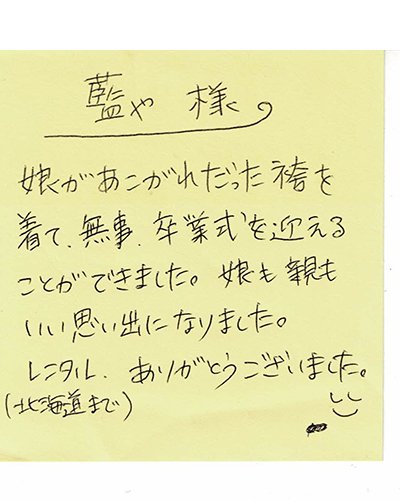 藍や 様
娘があこがれだった袴を
着て、無事、卒業式を迎える
ことができました。娘も親も
いい思い出になりました。
レンタル、ありがとうございました。
(北海道まで)